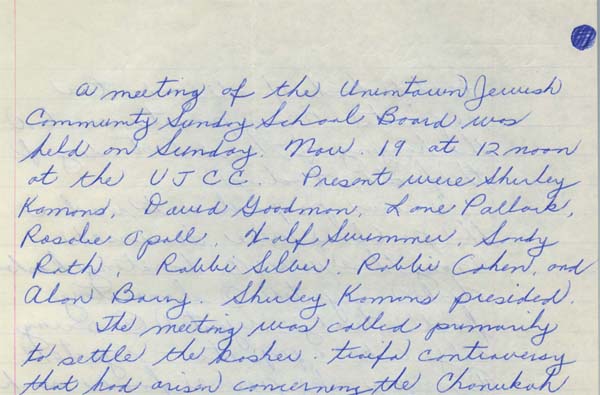 A meeting of the Uniontown Jewish
Community Sunday School Board was
held on Sunday. Nov. 19 at 12 noon
at the UJCC. Present were Shirley
Kamons, David Goodman, Lane Pallack,
Rosalie Opall, Half Swimmer, Sandy
Roth, Rabbi Selber, Rabbi Cohen, and
Alan Barny. Shirley Kamons presided.
The meeting was called primarily
to settle the kosher-traifa controversy
that had arisen concerning the Chanukah